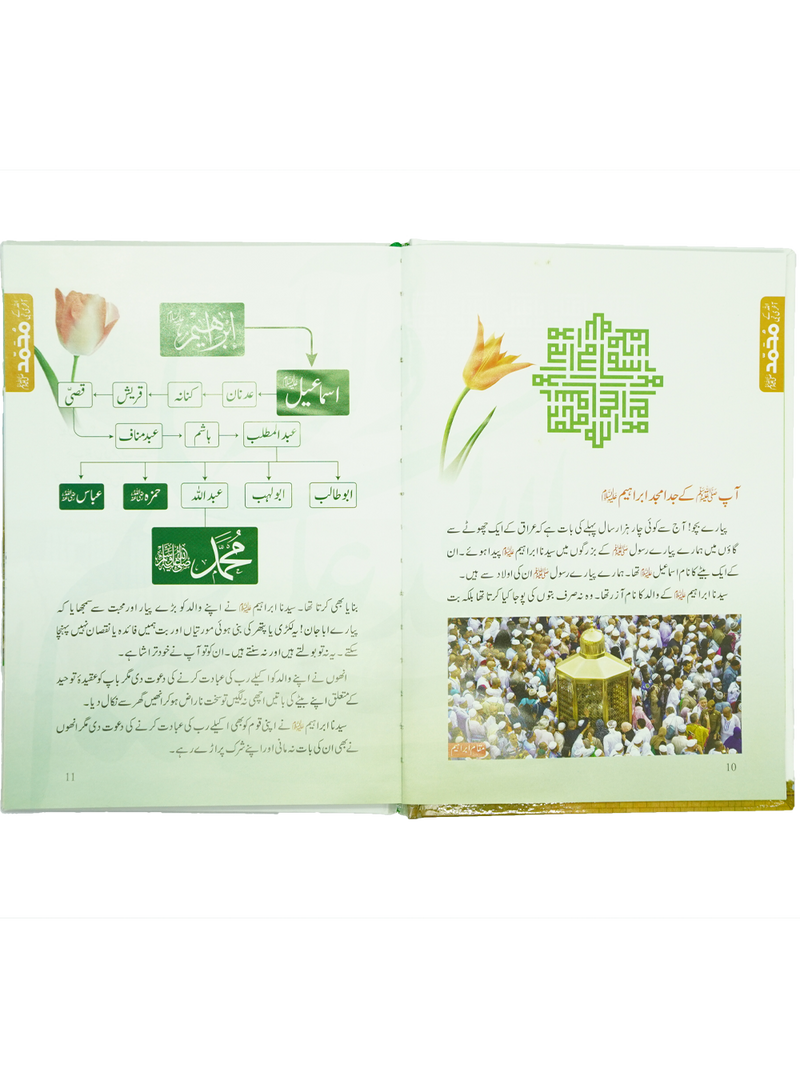 اللہ کے
آخری نبی
محمد ﷺ
آپ ﷺ کے جد امجد ابراہیم علیہ السلام
پیارے بچو! آج سے کوئی چار ہزار سال پہلے کی بات ہے کہ عراق کے ایک چھوٹے سے
گاؤں میں ہمارے پیارے رسول ﷺ کے بزرگوں میں سیدنا ابراہیم علیہ السلام پیدا ہوئے۔ ان
کے ایک بیٹے کا نام اسماعیل علیہ السلام تھا۔ ہمارے پیارے رسول ﷺ ان کی اولاد سے ہیں۔
سیدنا ابراہیم علیہ السلام کے والد کا نام آزر تھا۔ وہ نہ صرف بتوں کی پوجا کیا کرتا تھا بلکہ بت
مقام ابراہیم
10
اللہ کے
آخری نبی
محمد ﷺ
ابراہیم علیہ السلام
اسماعیل علیہ السلام
عدنان
کنانہ
قریش
قصیّ
عبد مناف
ہاشم
عبدالمطلب
ابوطالب
ابولہب
عبداللہ
حمزہ رضی اللہ عنہ
عباس رضی اللہ عنہ
محمد صلی اللہ علیہ وسلم
بنایا بھی کرتا تھا۔ سیدنا ابراہیم علیہ السلام نے اپنے والد کو بڑے پیار اور محبت سے سمجھایا کہ
پیارے ابا جان! یہ لکڑی یا پتھر کی بنی ہوئی مورتیاں اور بت ہمیں فائدہ یا نقصان نہیں پہنچا
سکتے۔ یہ نہ تو بولتے ہیں اور نہ سنتے ہیں۔ ان کو تو آپ نے خود تراشا ہے۔
انھوں نے اپنے والد کو اکیلے رب کی عبادت کرنے کی دعوت دی مگر باپ کو عقیدۂ توحید
کے متعلق اپنے بیٹے کی باتیں اچھی نہ لگیں تو سخت ناراض ہو کر انھیں گھر سے نکال دیا۔
سیدنا ابراہیم علیہ السلام نے اپنی قوم کو بھی اکیلے رب کی عبادت کرنے کی دعوت دی مگر انھوں
نے بھی ان کی بات نہ مانی اور اپنے شرک پر اڑے رہے۔
11